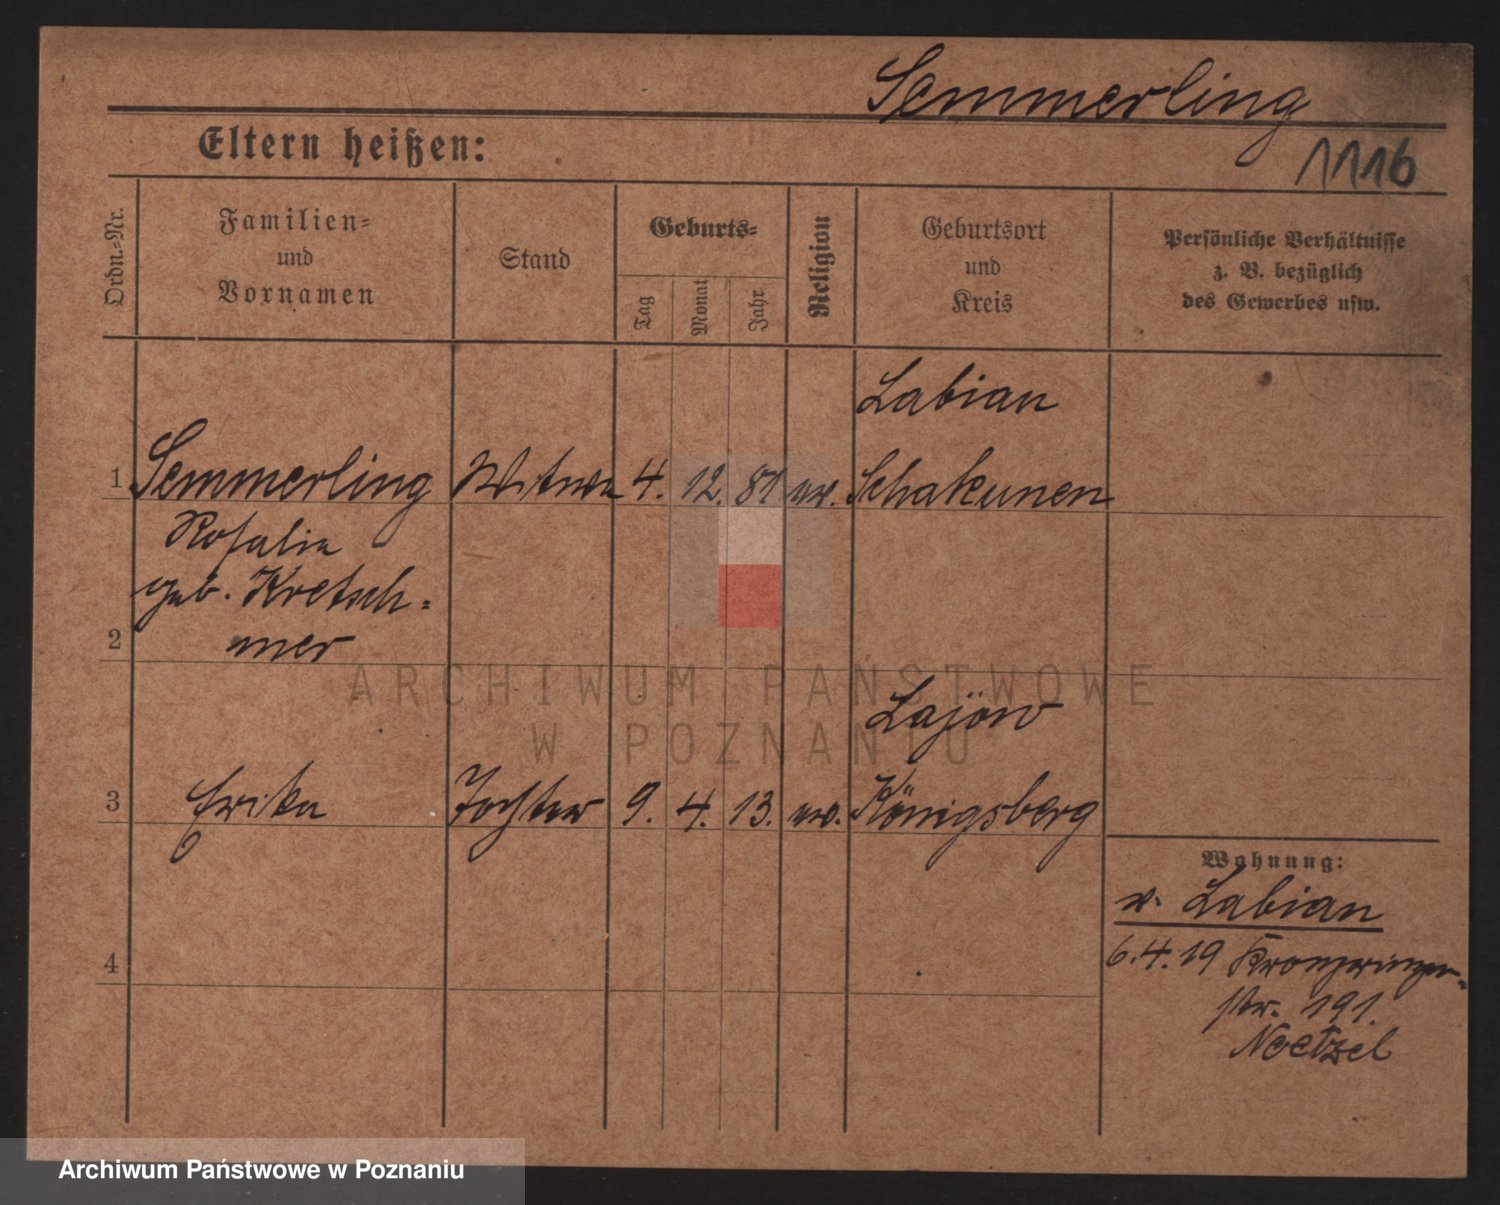 Semmerling
Eltern heißen:
1116
Ordn.-Nr.
Familien-
und
Vornamen
Stand
Geburts-
Tag
Monat
Jahr
Religion
Geburtsort
und
Kreis
Persönliche Verhältnisse
z. B. bezüglich
des Gewerbes usw.
Labian
1 Semmerling Witwe 4. 12. 81 ev. Schakunen
Rosalie
geb. Kretsch-
2 mer
ARCHIWUM PAŃSTWOWE
W POZNANIU
3 Erika Tochter 9. 4. 13. ev. Königsberg
Wohnung:
v. Labian
4
6.4.19 Kronprinzen-
str. 191.
Noetzel
Archiwum Państwowe w Poznaniu